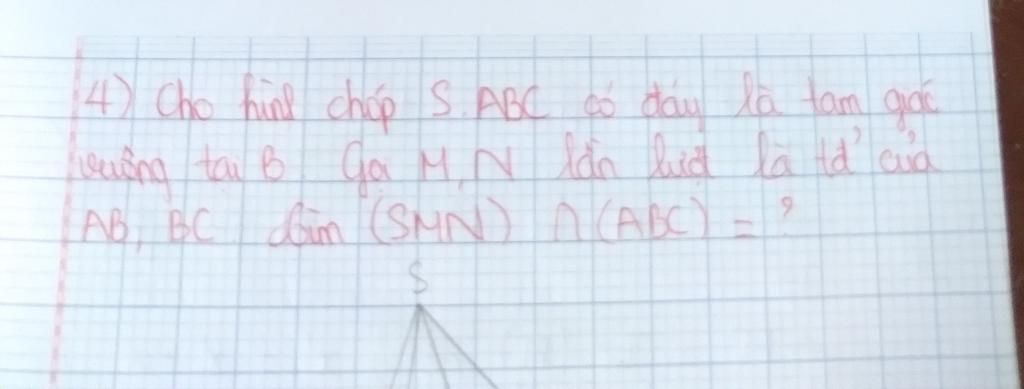 4) Cho hình chóp S.ABC có đáy là tam giác
vuông tại B. Gọi M, N lần lượt là tđ của
AB, BC. Tìm (SMN) ∩ (ABC) = ?
S